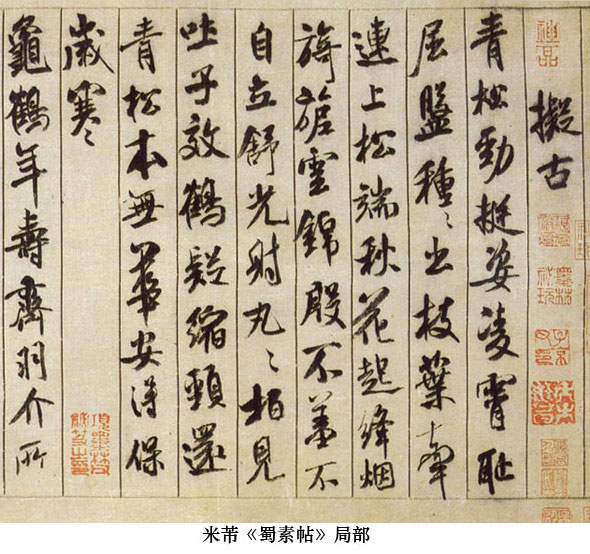 神品
擬古
青松勁挺姿凌霄恥
屈盤種〻出枝葉牽
連上松端秋花起絳烟
旖旎雲錦殷不羞不
自立舒光射丸〻柏見
吐子效鶴疑縮頸還
青松本無華安得保
歲寒〻
龜鶴年壽齊羽介所
米芾《蜀素帖》局部